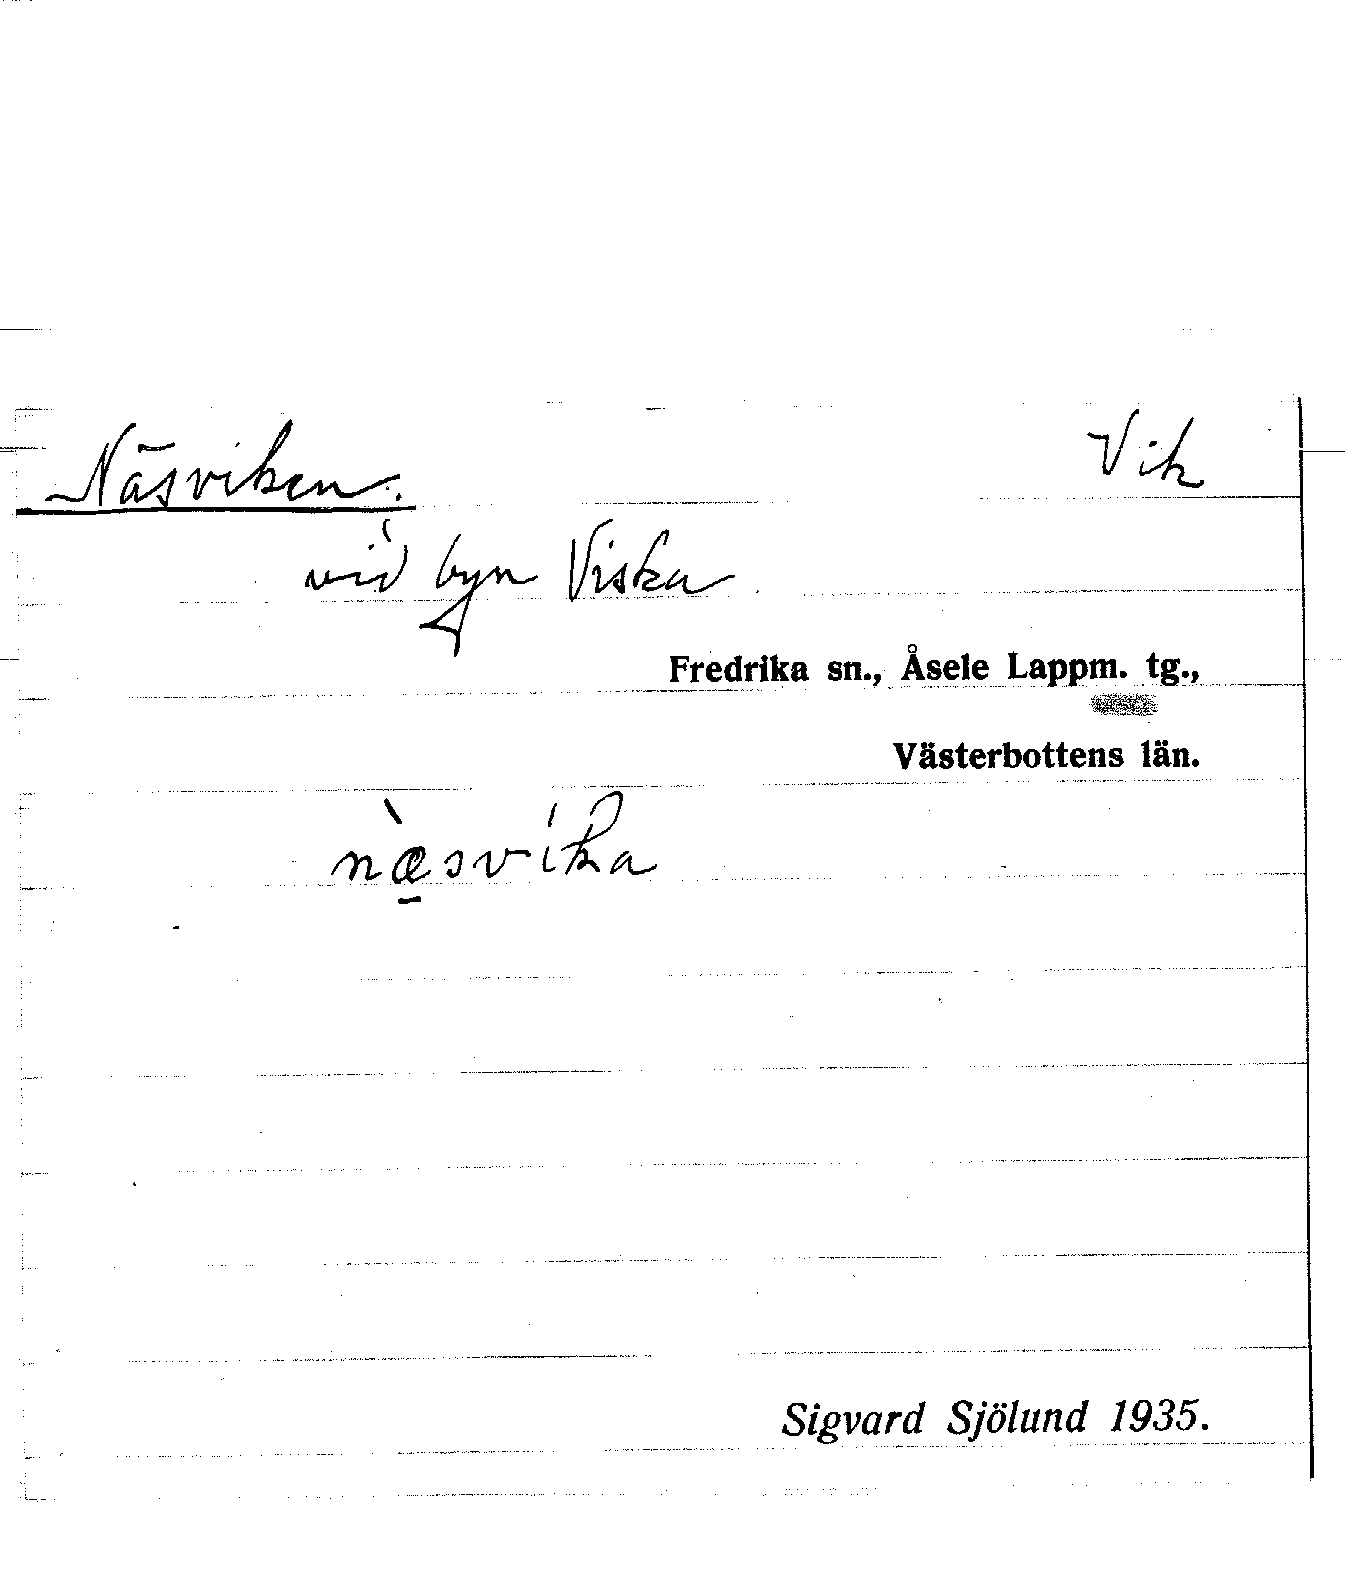 Näsviken. Vik
vid byn Viska
Fredrika sn., Åsele Lappm. tg.,
Västerbottens län.
næ̀svíka
Sigvard Sjölund 1935.